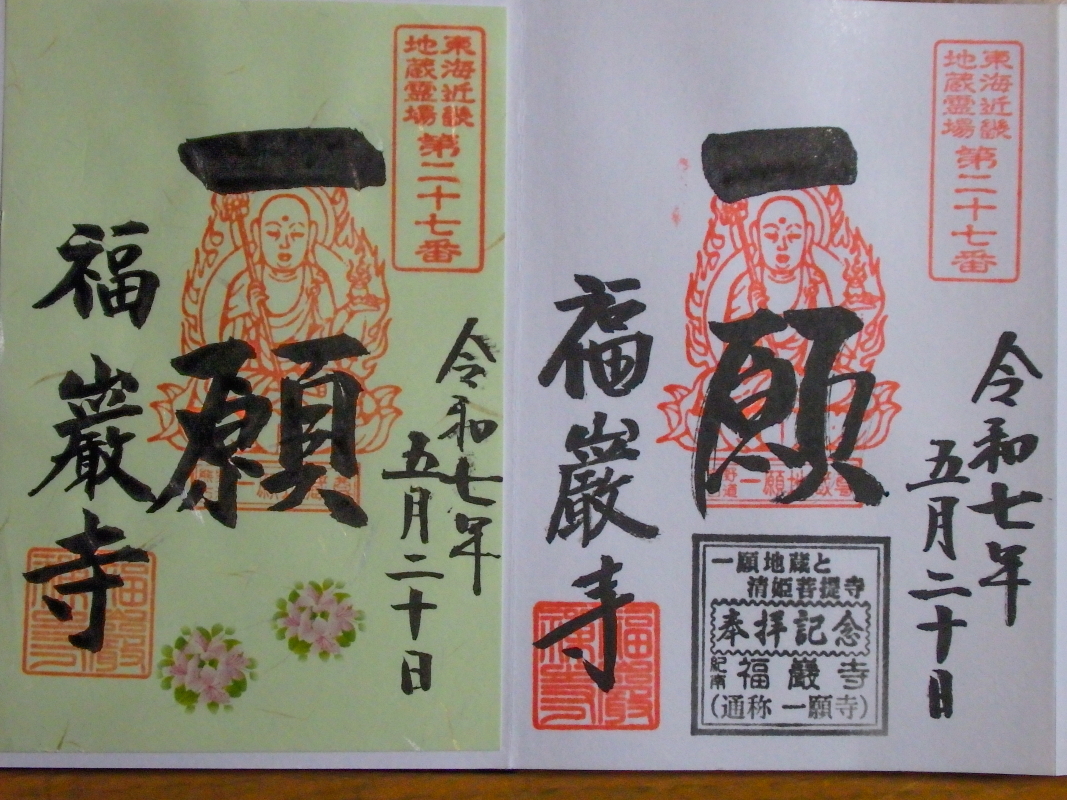 東海近畿
地蔵霊場
第二十七番
一願
令和七年
五月二十日
福巖寺
東海近畿
地蔵霊場
第二十七番
一願
令和七年
五月二十日
福巖寺
一願地蔵と
清姫菩提寺
奉拝記念
紀南 福巖寺
(通称 一願寺)